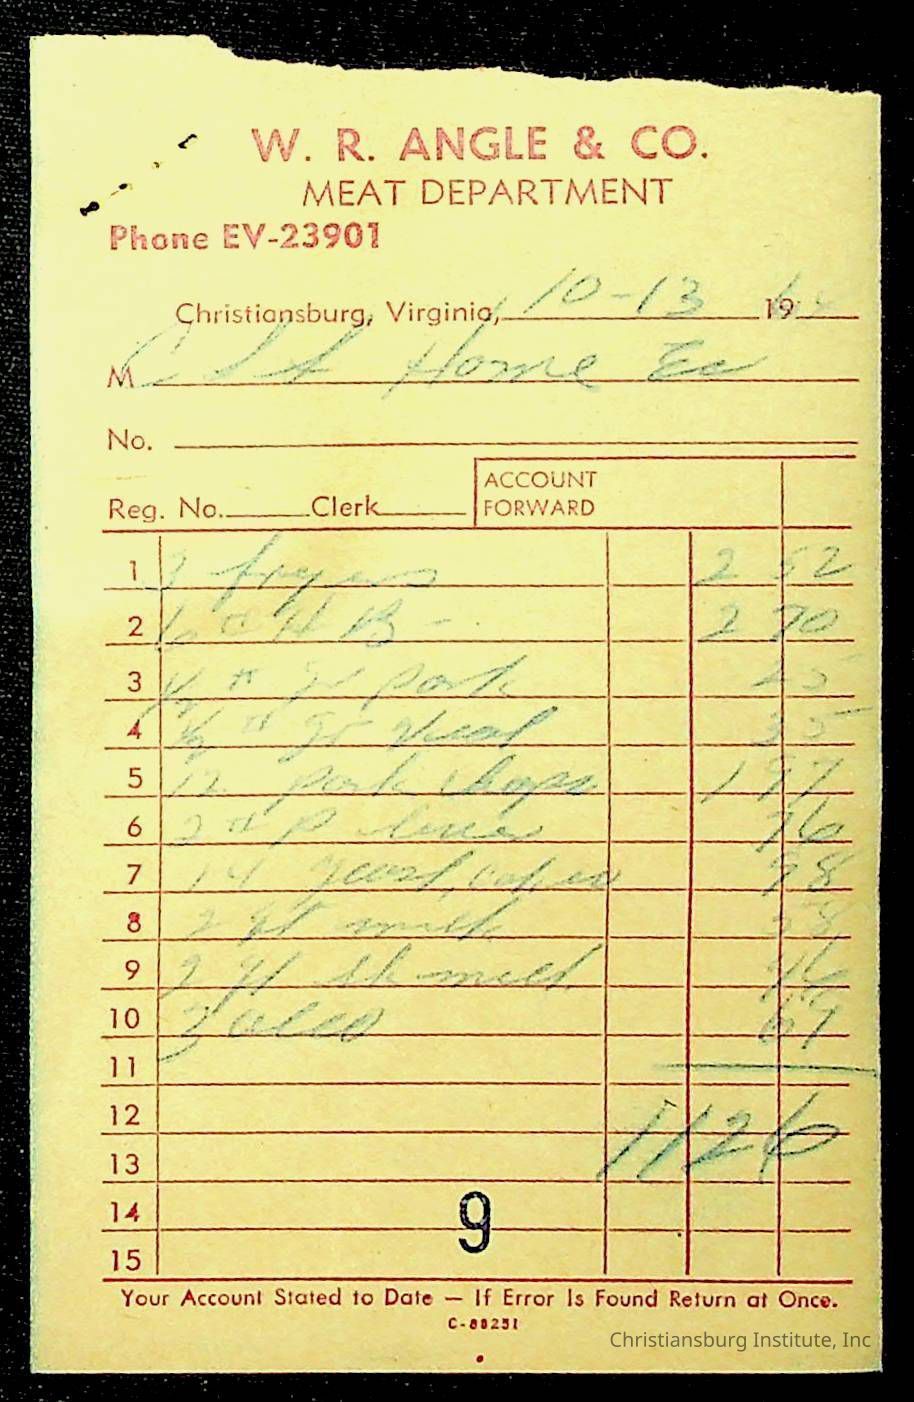 W. R. ANGLE & CO.
MEAT DEPARTMENT
Phone EV-23901
Christiansburg, Virginia, 10-13 19
M Home Ec
No.
Reg. No. Clerk ACCOUNT FORWARD
1 3 fryers 2 52
2 H B - 2 70
3 ½ # gr Pork 25
4 ½ # gr Veal 35
5 12 Pork Chops 1 97
6 2 # P 76
7 14 98
8 2 qt milk 58
9 2 qt sk milk 46
10 3 oleo 69
11
12 11 26
13
14
9
15
Your Account Stated to Date — If Error Is Found Return at Once.
C-88251
Christiansburg Institute, Inc